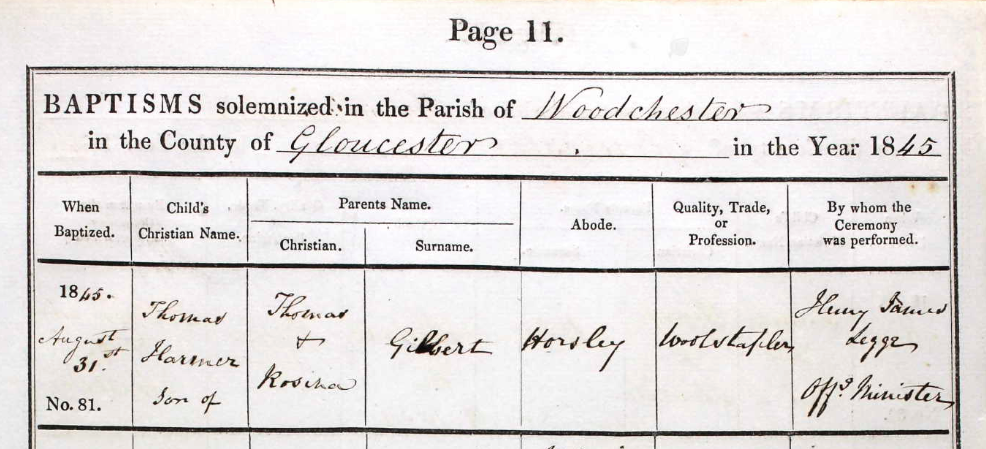 Page 11.
BAPTISMS solemnized in the Parish of Woodchester
in the County of Gloucester in the Year 1845
When
Baptized.
Child's
Christian Name.
Parents Name.
Christian.
Surname.
Abode.
Quality, Trade,
or
Profession.
By whom the
Ceremony
was performed.
1845.
August
31st
No. 81.
Thomas
Harmer
Son of
Thomas
+
Rosina
Gilbert
Horsley
Woolstapler
Henry James
Legge
Offg Minister